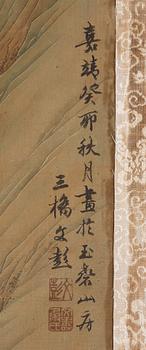 嘉靖癸卯秋月畫於玉磬山房
三橋文彭